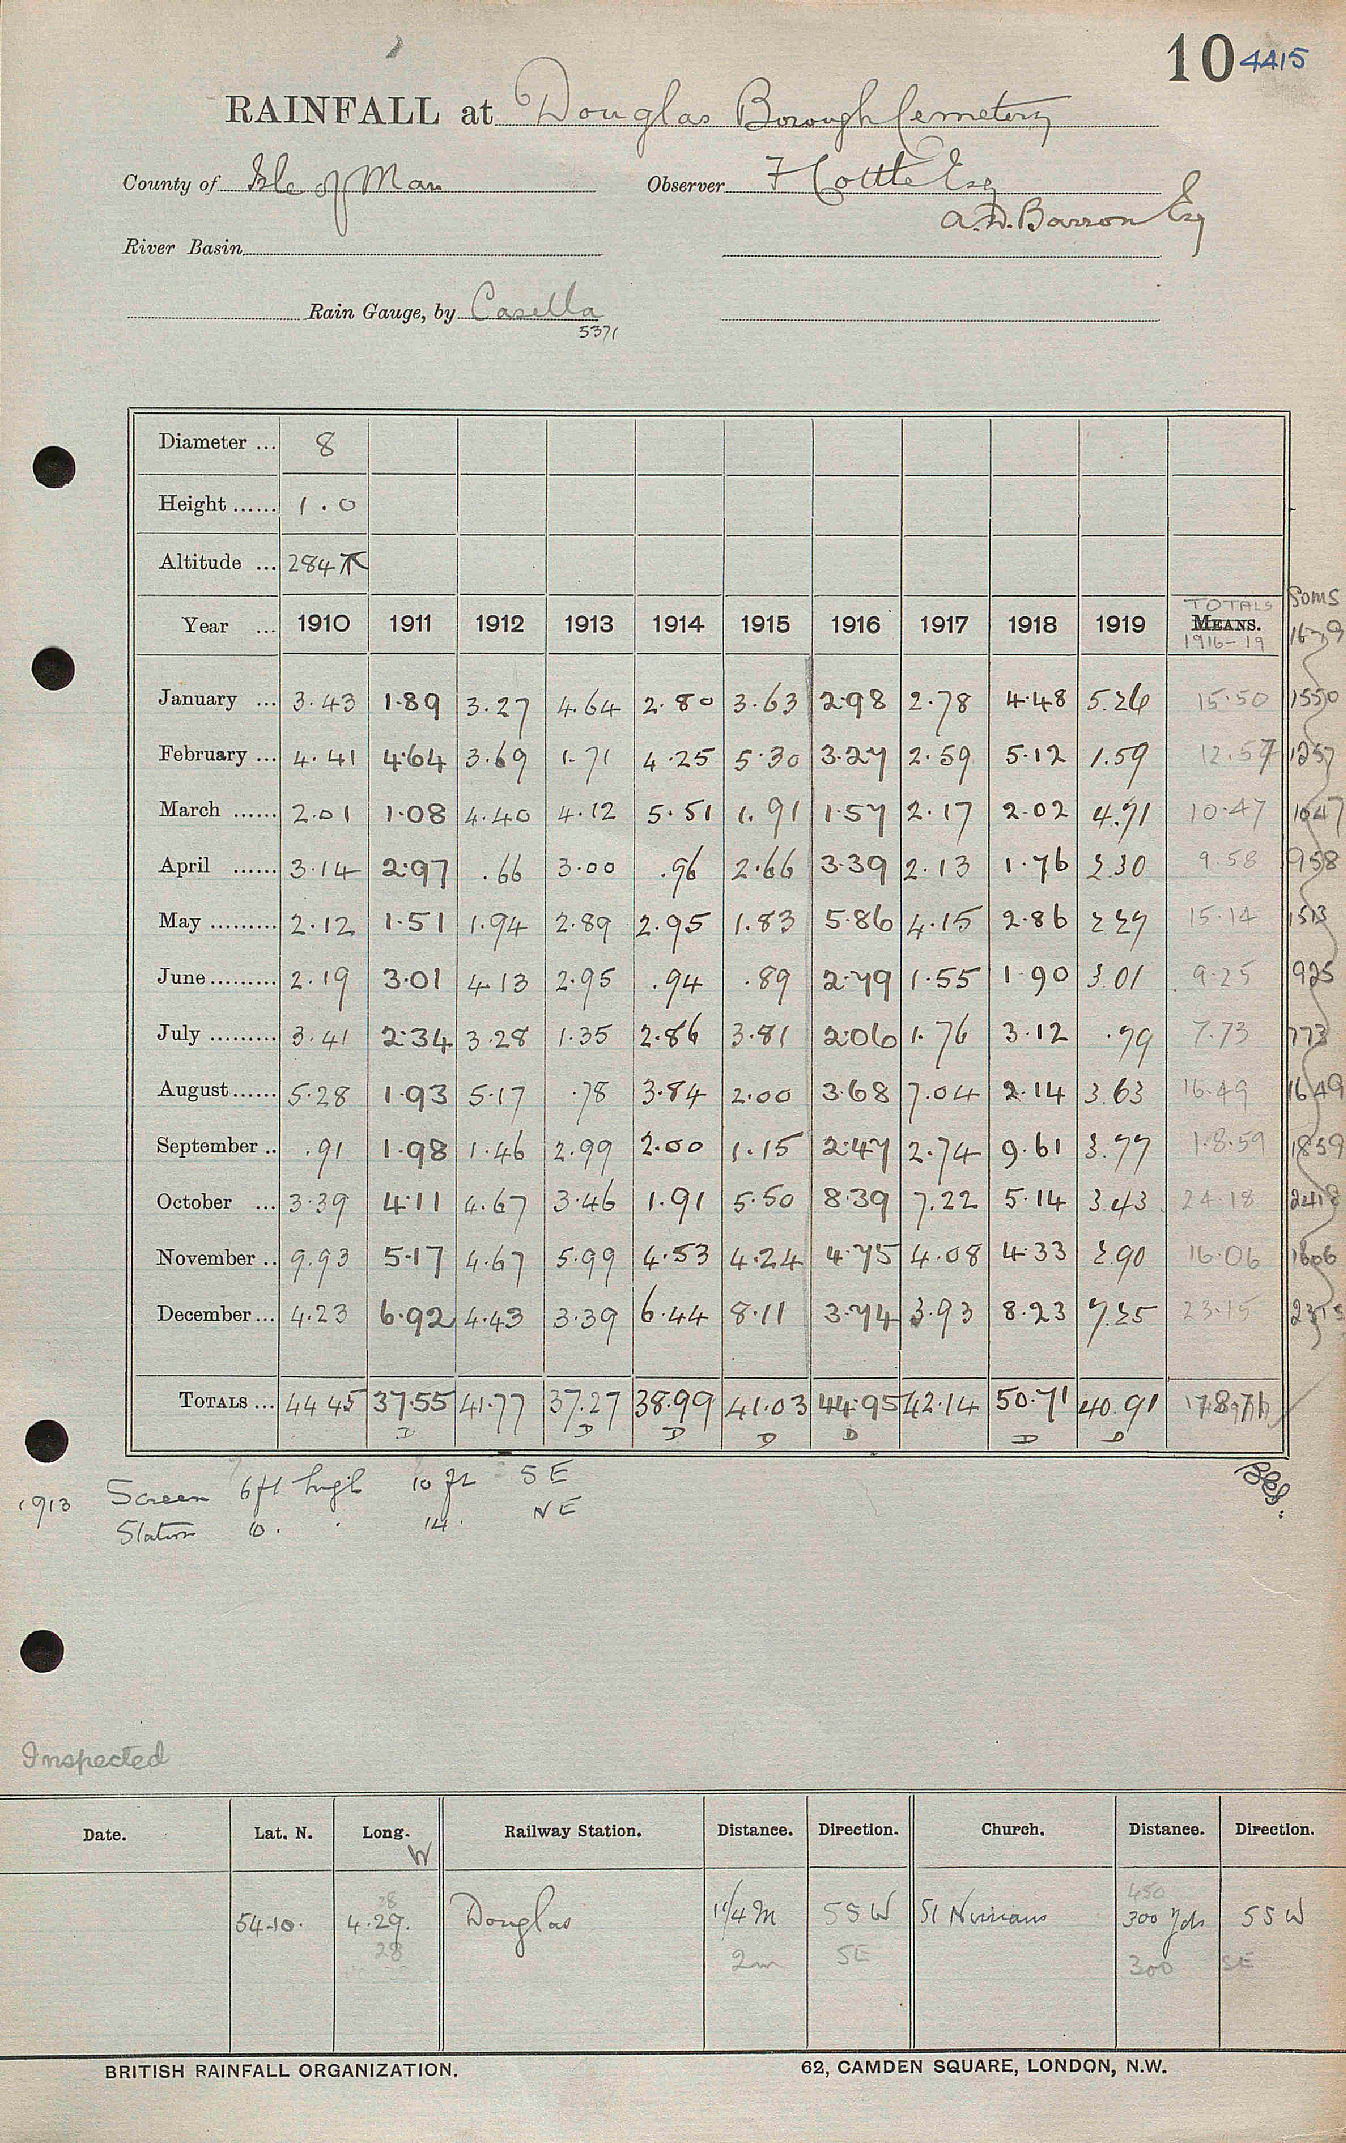 10 4415
RAINFALL at Douglas Borough Cemetery
County of Isle of Man Observer F Cottle Esq
A.D. Barron Esq
River Basin
Rain Gauge, by Casella
5371
Diameter ... 8
Height ...... 1.0
Altitude ... 284
TOTALS Soms
Year ... 1910 1911 1912 1913 1914 1915 1916 1917 1918 1919 MEANS. 16-19
1916-19
January ... 3.43 1.89 3.27 4.64 2.80 3.63 2.98 2.78 4.48 5.26 15.50 1550
February ... 4.41 4.64 3.69 1.71 4.25 5.30 3.27 2.59 5.12 1.59 12.57 1257
March ...... 2.01 1.08 4.40 4.12 5.51 1.91 1.57 2.17 2.02 4.71 10.47 1047
April ...... 3.14 2.97 .66 3.00 .96 2.66 3.39 2.13 1.76 2.30 9.58 958
May ......... 2.12 1.51 1.94 2.89 2.95 1.83 5.86 4.15 2.86 2.27 15.14 1513
June ......... 2.19 3.01 4.13 2.95 .94 .89 2.79 1.55 1.90 3.01 9.25 925
July ......... 3.41 2.34 3.28 1.35 2.86 3.81 2.06 1.76 3.12 .79 7.73 773
August ...... 5.28 1.93 5.17 .78 3.84 2.00 3.68 7.04 2.14 3.63 16.49 1649
September .. .91 1.98 1.46 2.99 2.00 1.15 2.47 2.74 9.61 3.77 18.59 1859
October ... 3.39 4.11 4.67 3.46 1.91 5.50 8.39 7.22 5.14 3.43 24.18 2418
November .. 9.93 5.17 4.67 5.99 4.53 4.24 4.75 4.08 4.33 2.90 16.06 1606
December ... 4.23 6.92 4.43 3.39 6.44 8.11 3.74 3.93 8.23 7.25 23.15 2315
TOTALS ... 44 45 37.55 41.77 37.27 38.99 41.03 44.95 42.14 50.71 40.91 178.71
D D D D D D D
1913 Screen 6 ft high 10 ft SE
Station 10 . . 14 . NE
Inspected
Date. Lat. N. Long. W Railway Station. Distance. Direction. Church. Distance. Direction.
28 450
54-10. 4.29. Douglas 1 1/4 M SSW St Ninians 300 yds SSW
28 2m SE 300 SE
BRITISH RAINFALL ORGANIZATION. 62, CAMDEN SQUARE, LONDON, N.W.